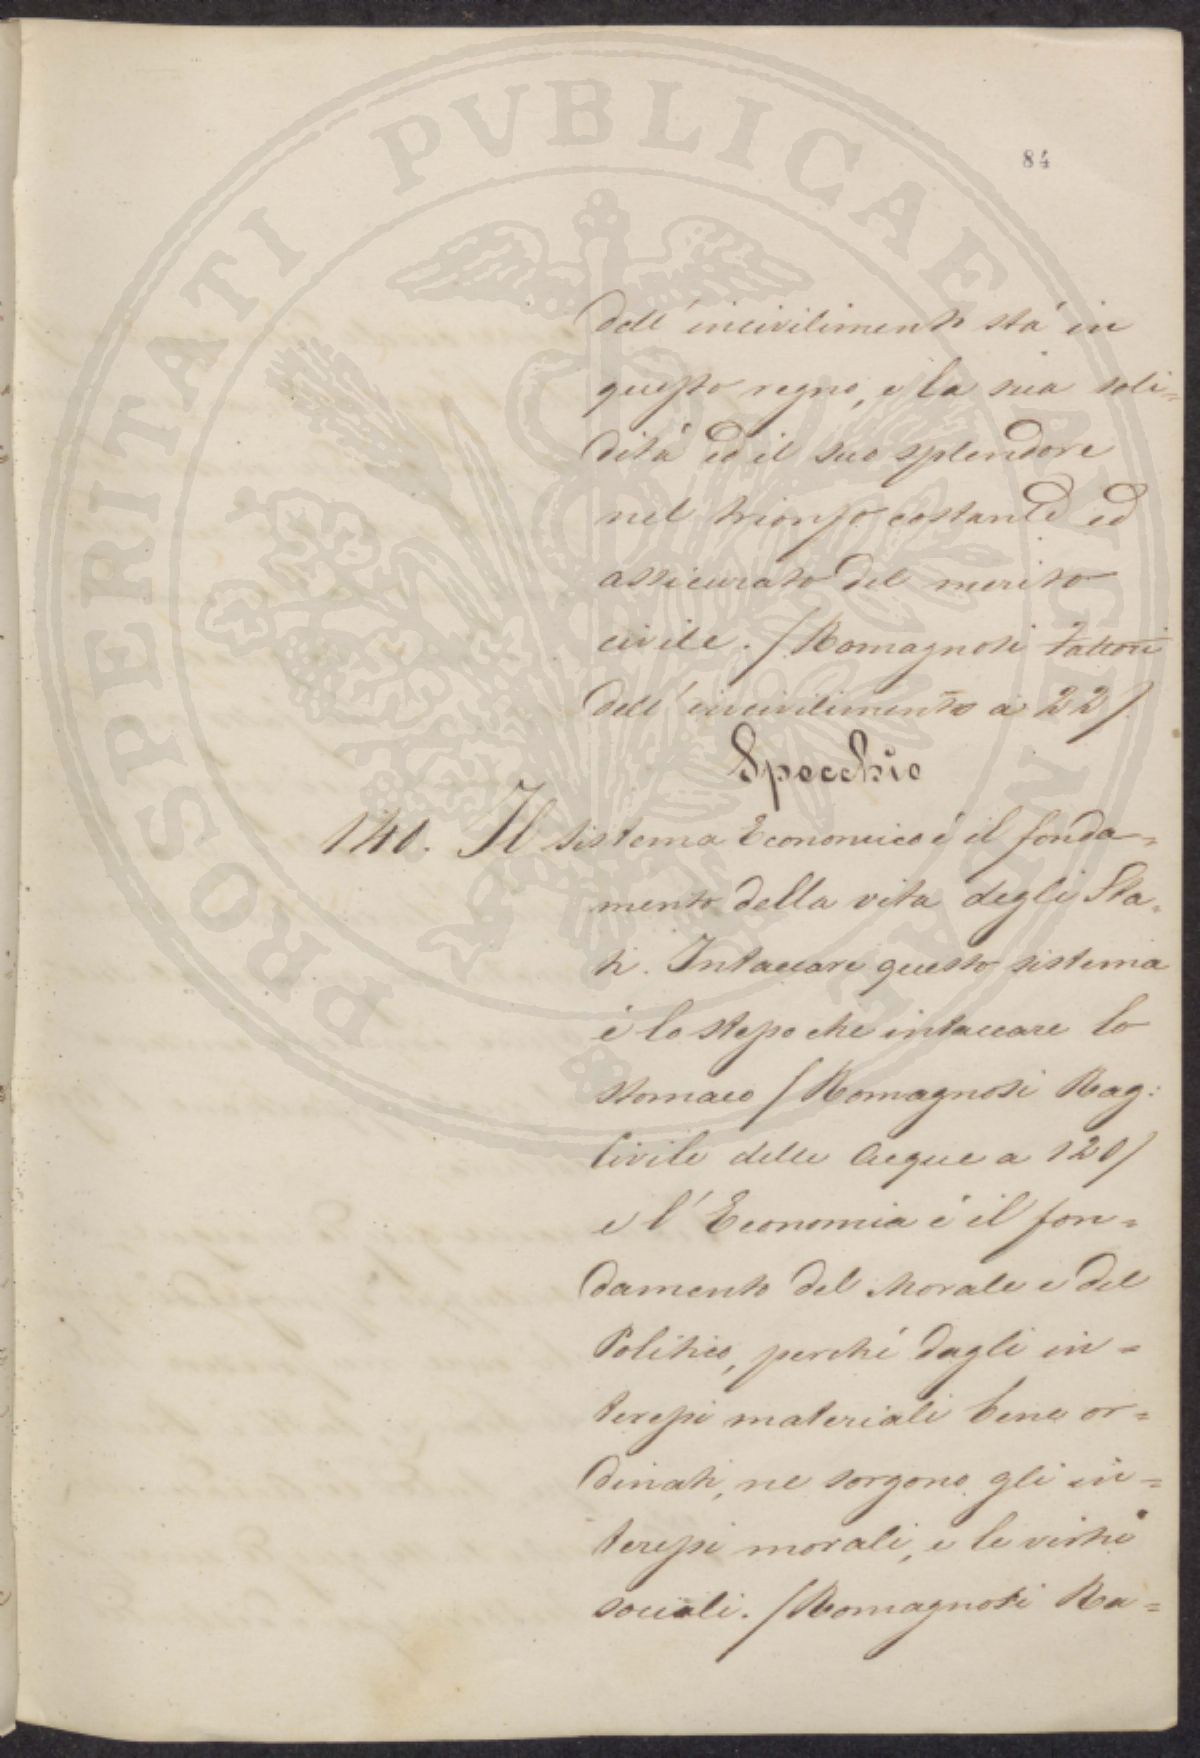 84
dell'incivilimento stà in
questo regno, e la sua soli=
dità ed il suo splendore
nel trionfo costante ed
assicurato del merito
civile. /Romagnosi Fattori
dell'incivilimento a 22/.
Specchio
140. Il sistema Economico è il fonda=
mento della vita degli Sta=
ti. Intaccare questo sistema
è lo stesso che intaccare lo
stomaco /Romagnosi Rag:
Civile delle Acque a 120/
e l'Economia è il fon=
damento del Morale e del
Politico, perchè dagli in=
teressi materiali bene or=
dinati, ne sorgono gli in=
teressi morali, e le virtù
sociali. /Romagnosi Ra=
PROSPERITATI PVBLICAE AVGENDAE